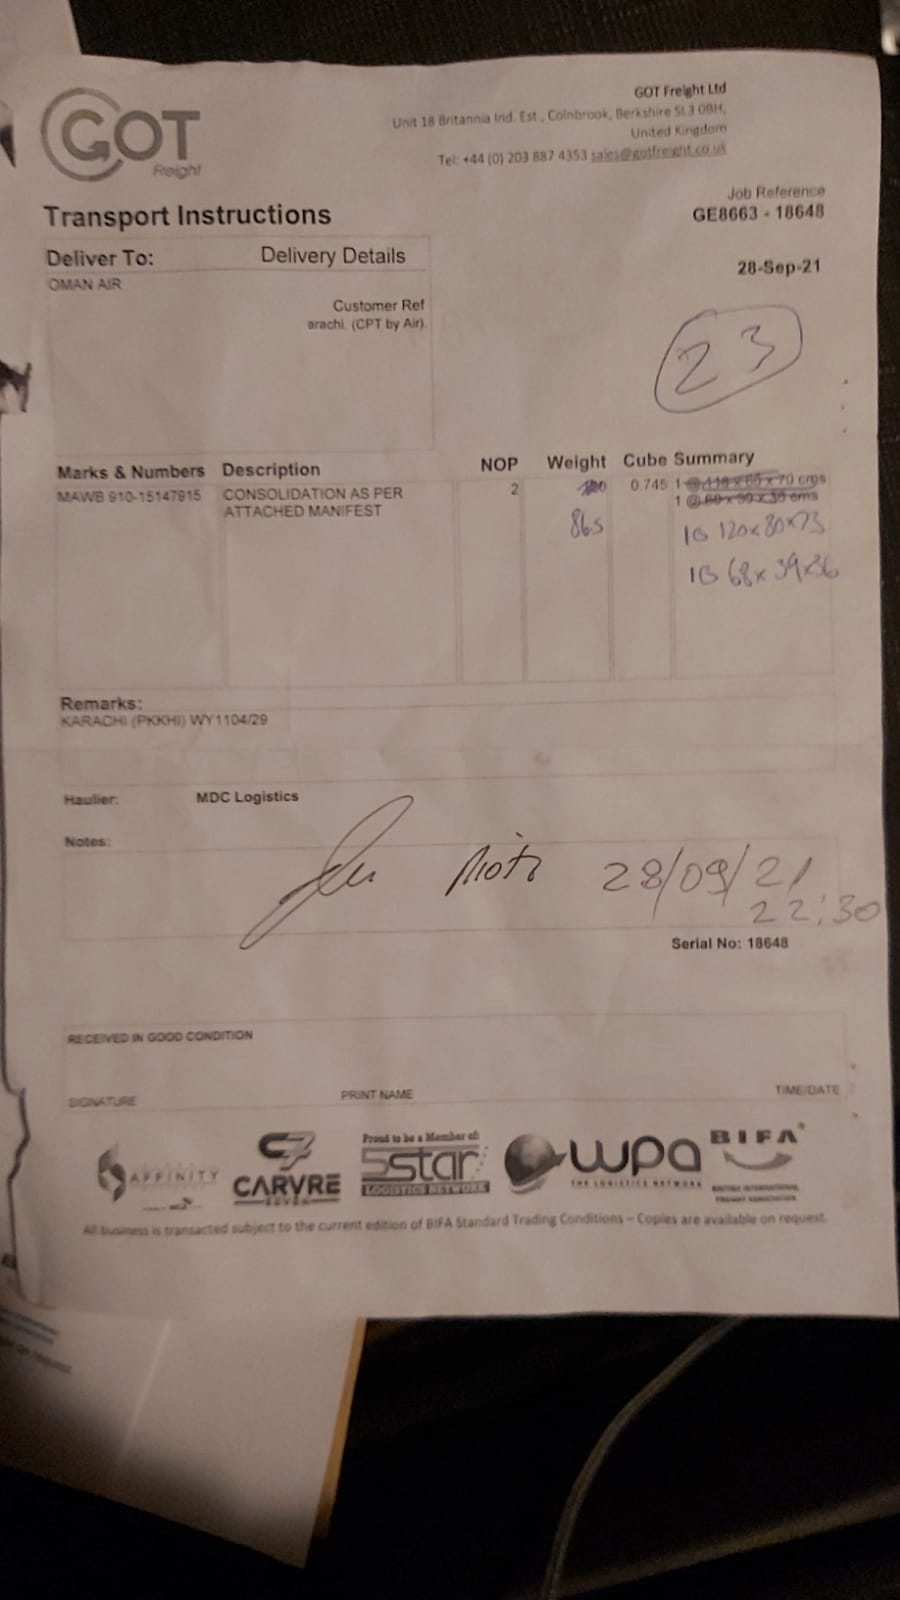 GOT
Freight
GOT Freight Ltd
Unit 18 Britannia Ind. Est., Colnbrook, Berkshire SL3 0BH,
United Kingdom
Tel: +44 (0) 203 887 4353 sales@gotfreight.co.uk
Job Reference
GE8663 - 18648
Transport Instructions
28-Sep-21
Deliver To: Delivery Details
OMAN AIR
Customer Ref
arachi. (CPT by Air).
23
Marks & Numbers Description NOP Weight Cube Summary
MAWB 910-15147915 CONSOLIDATION AS PER 2 0.745 1 @ x 70 cms
ATTACHED MANIFEST 1 @ cms
86.5
120x80x73
68x39x36
Remarks:
KARACHI (PKKHI) WY1104/29
Haulier: MDC Logistics
Notes:
28/09/21
22:30
Serial No: 18648
RECEIVED IN GOOD CONDITION
SIGNATURE PRINT NAME TIME/DATE
AFFINITY
CARVRE
SEVEN
Proud to be a Member of:
5star
LOGISTICS NETWORK
wpa
THE LOGISTICS NETWORK
BIFA
BRITISH INTERNATIONAL
FREIGHT ASSOCIATION
All business is transacted subject to the current edition of BIFA Standard Trading Conditions – Copies are available on request.